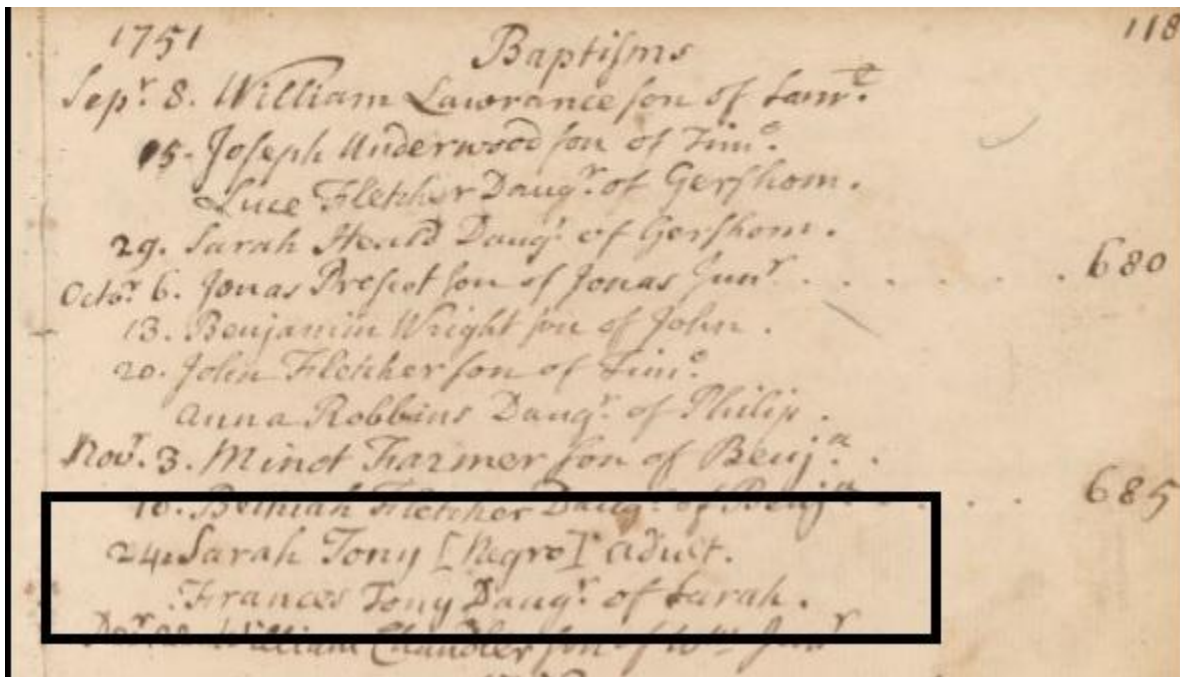 1751 Baptisms 118
Sepr. 8. William Lawrance son of Samle.
15. Joseph Underwood son of Timo.
Luce Fletcher Daugr. of Gershom.
29. Sarah Heald Daugr. of Gershom.
Octor. 6. Jonas Prescot son of Jonas Junr . . . . . . . 680
13. Benjamin Wright son of John.
20. John Fletcher son of Timo.
Anna Robbins Daugr. of Philip.
Novr. 3. Minot Farmer son of Benja.
10. Bethiah Fletcher Daugr. of Benja . . . . 685
24. Sarah Tony [Negro] adult.
Frances Tony Daugr. of Sarah.
William Chandler son of Wm Junr